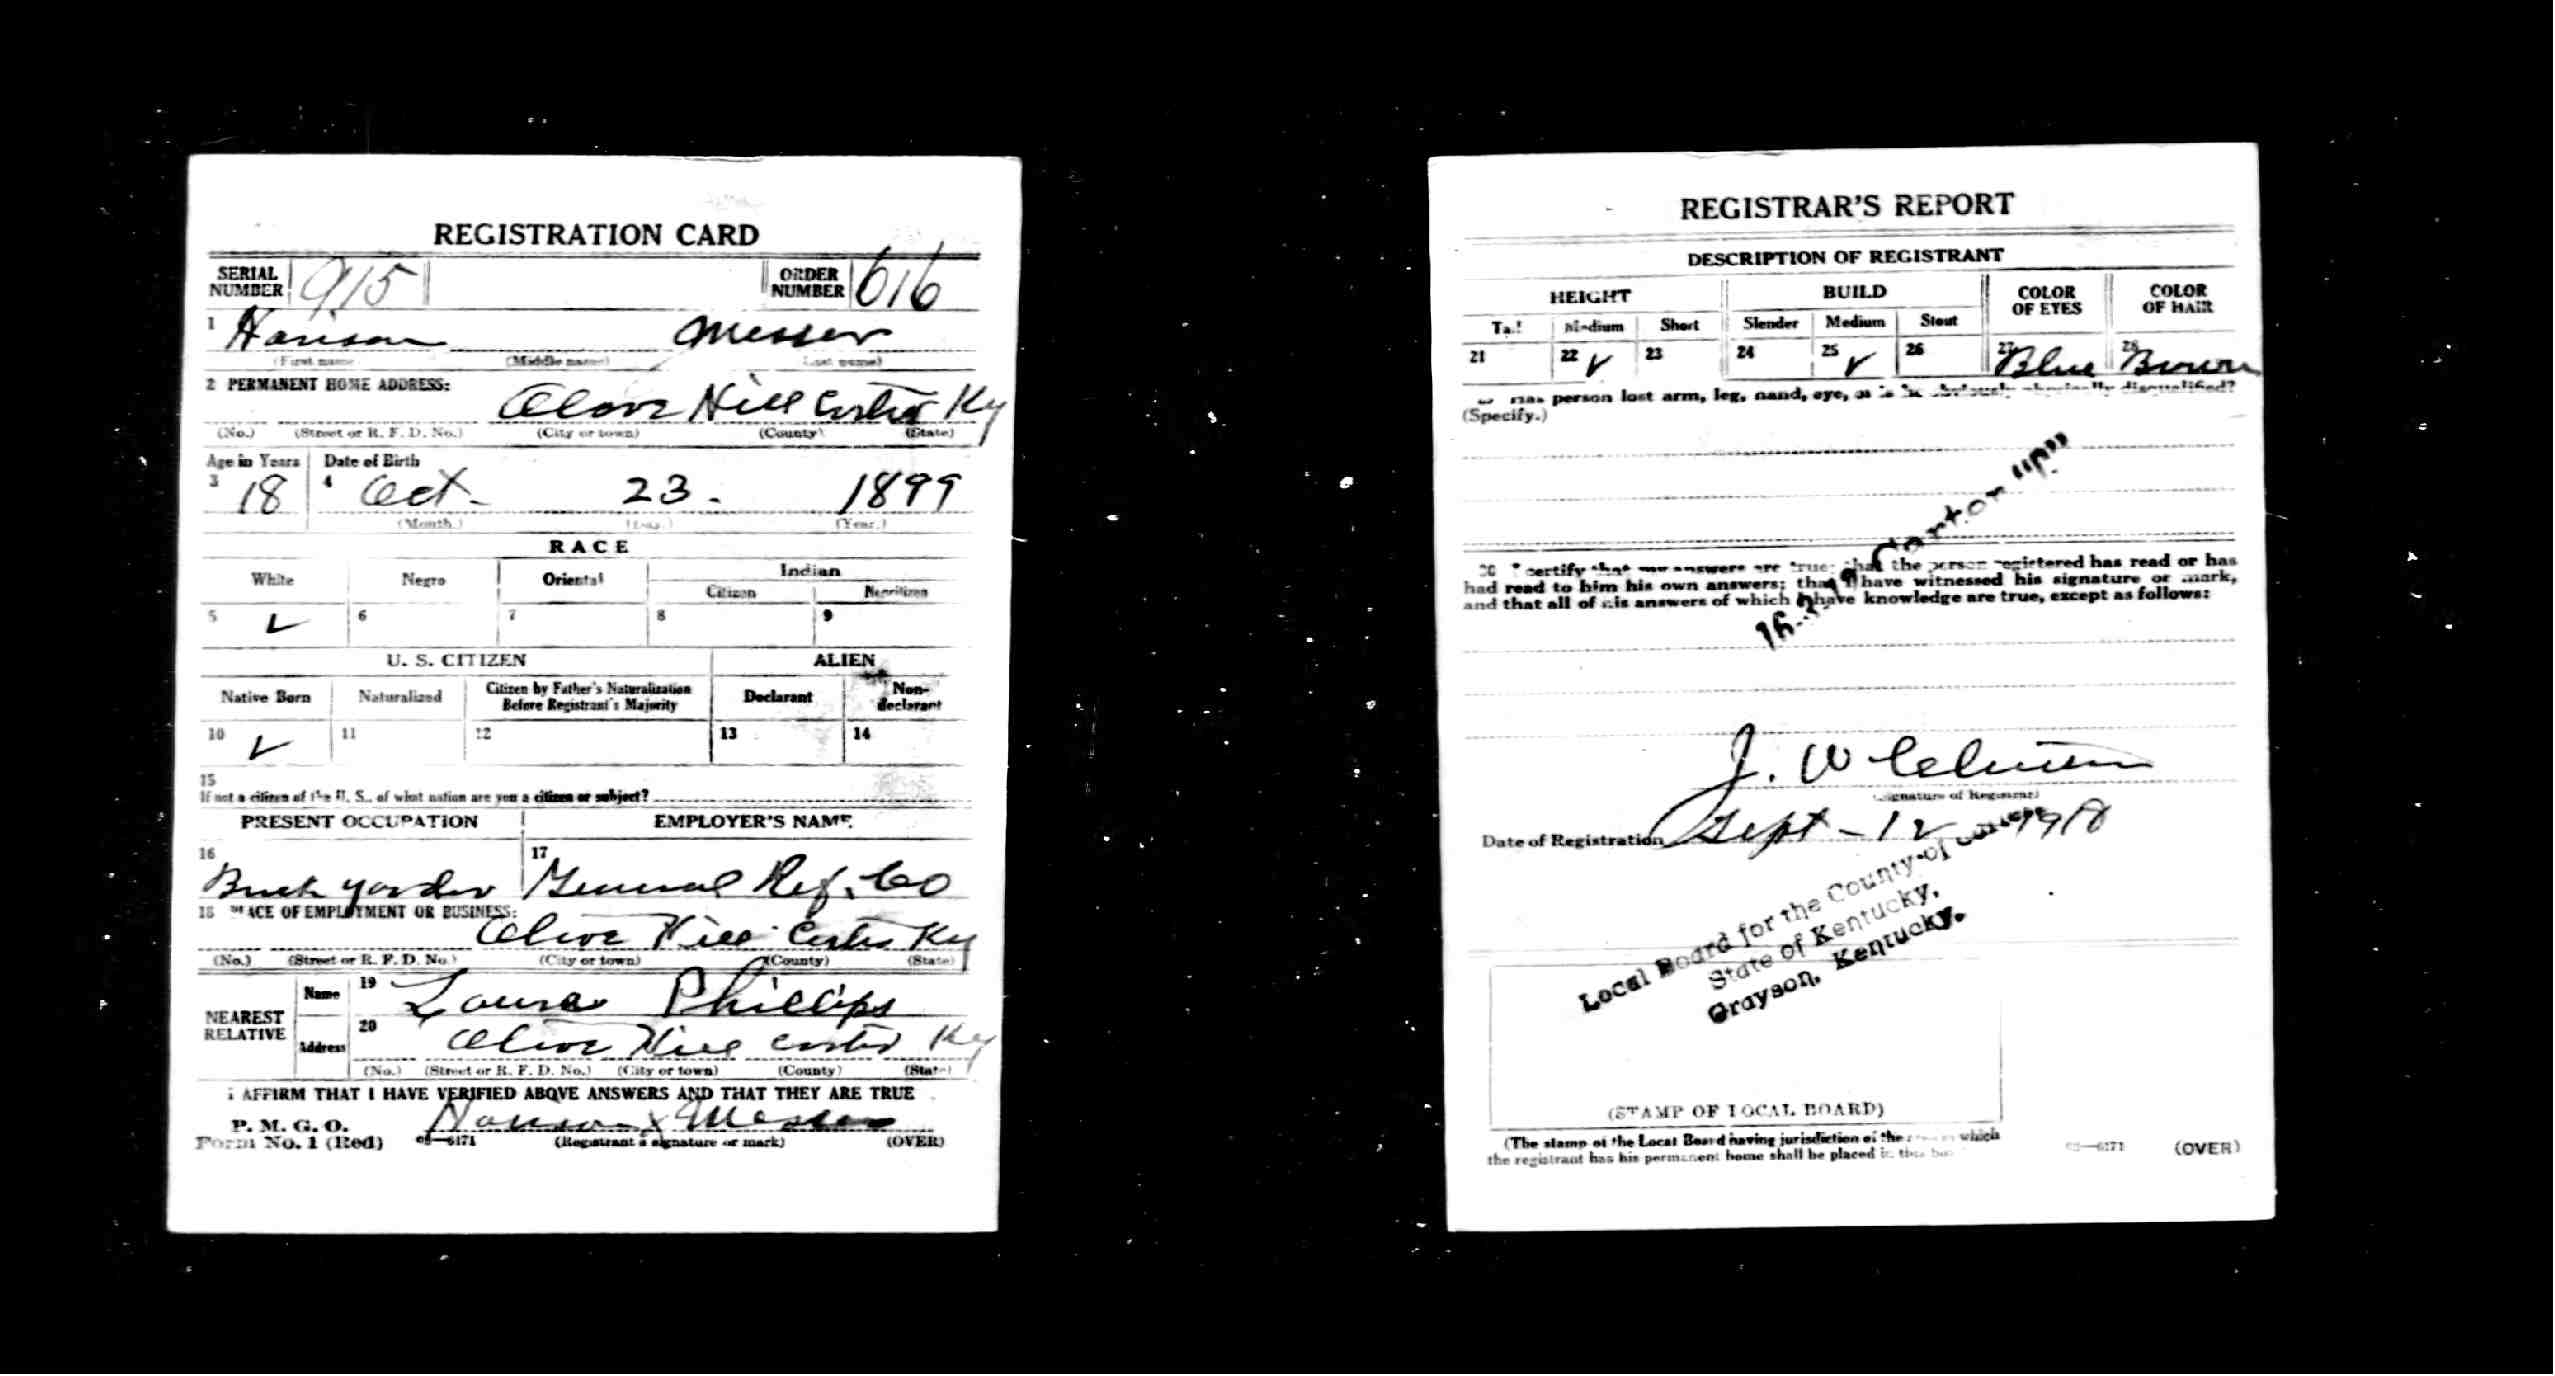 REGISTRATION CARD
SERIAL NUMBER 915 ORDER NUMBER 616
1 Harison Messer
(First name) (Middle name) (Last name)
2 PERMANENT HOME ADDRESS:
Olive Hill Carter Ky
(No.) (Street or R. F. D. No.) (City or town) (County) (State)
Age in Years Date of Birth
3 18 4 Oct. 23. 1899
(Month.) (Day.) (Year.)
RACE
White Negro Oriental Indian
Citizen Noncitizen
5 ✓ 6 7 8 9
U. S. CITIZEN ALIEN
Native Born Naturalized Citizen by Father's Naturalization Before Registrant's Majority Declarant Non-declarant
10 ✓ 11 12 13 14
15
If not a citizen of the U. S., of what nation are you a citizen or subject?
PRESENT OCCUPATION EMPLOYER'S NAME
16 Brick yarder 17 General Ref. Co
18 PLACE OF EMPLOYMENT OR BUSINESS:
Olive Hill Carter Ky
(No.) (Street or R. F. D. No.) (City or town) (County) (State)
NEAREST RELATIVE Name 19 Laura Phillips
Address 20 Olive Hill Carter Ky
(No.) (Street or R. F. D. No.) (City or town) (County) (State)
I AFFIRM THAT I HAVE VERIFIED ABOVE ANSWERS AND THAT THEY ARE TRUE
P. M. G. O. Harison x Messer
Form No. 1 (Red) 03—6171 (Registrant's signature or mark) (OVER)
REGISTRAR'S REPORT
DESCRIPTION OF REGISTRANT
HEIGHT BUILD COLOR OF EYES COLOR OF HAIR
Tall Medium Short Slender Medium Stout
21 22 ✓ 23 24 25 ✓ 26 27 Blue 28 Brown
29 Has person lost arm, leg, hand, eye, or is he obviously physically disqualified?
(Specify.)
30 I certify that my answers are true; that the person registered has read or has
had read to him his own answers; that I have witnessed his signature or mark,
and that all of his answers of which I have knowledge are true, except as follows:
Carter
J. W
(Signature of Registrar)
Date of Registration Sept - 12 1918
Local Board for the County of Carter
State of Kentucky,
Grayson, Kentucky.
(STAMP OF LOCAL BOARD)
(The stamp of the Local Board having jurisdiction of the area in which
the registrant has his permanent home shall be placed in this box.)
03—6171 (OVER)